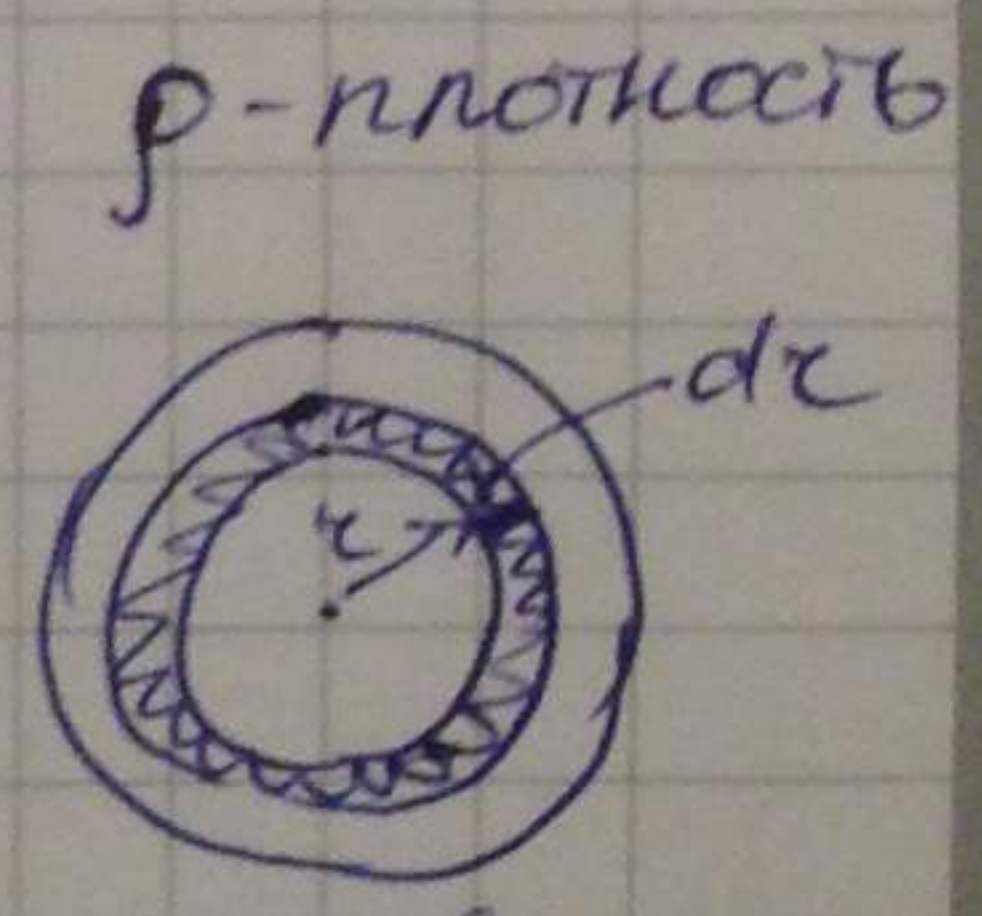 ρ - плотность
dr
r